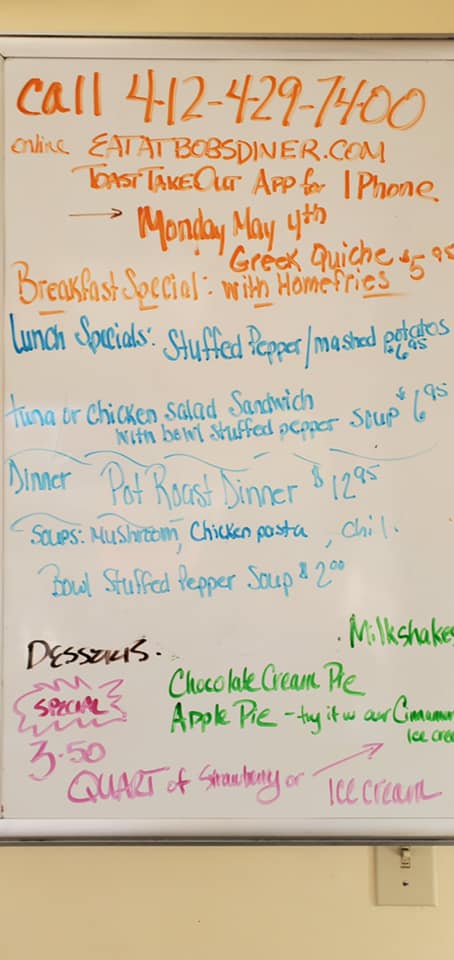 call 412-429-7400
online EATATBOBSDINER.COM
TOAST TAKEOUT APP for IPhone
→ Monday May 4th
Greek Quiche $5 95
Breakfast Special: with Homefries
Lunch Specials: Stuffed Pepper/mashed potatoes
$6 95
tuna or chicken salad Sandwich $6 95
with bowl stuffed pepper soup
Dinner Pot Roast Dinner $12 95
Soups: Mushroom, Chicken pasta, Chili
Bowl Stuffed Pepper Soup $2 00
Milkshakes
DESSERTS.
Chocolate Cream Pie
SPECIAL
Apple Pie - try it w our Cinnamon
Ice cream
3.50
QUART of Strawberry or
Ice cream